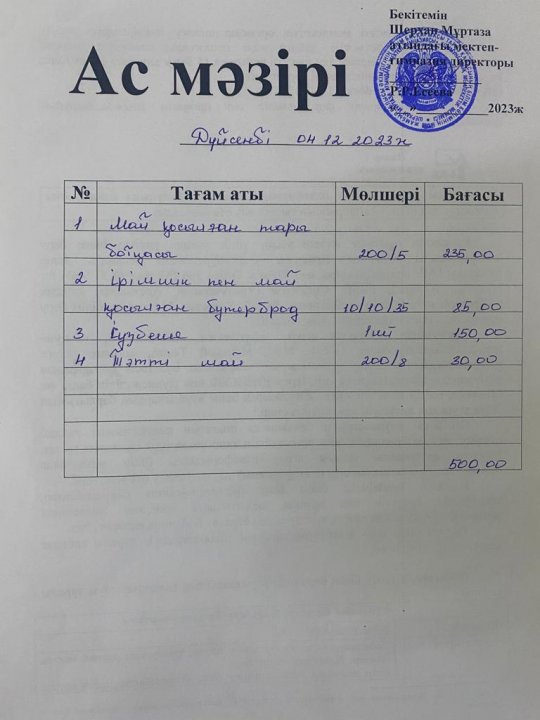 Бекітемін
Шерхан Мұртаза
атындағы мектеп-
гимназия директоры
Р.Р.Есеева
2023ж
Ас мәзірі
Дүйсенбі 04 12 2023ж
№ Тағам аты Мөлшері Бағасы
1 Май қосылған тары
ботқасы 200/5 235,00
2 ірімшік пен май
қосылған бутерброд 10/10/35 85,00
3 1шт 150,00
4 Тәтті май 200/8 30,00
500,00